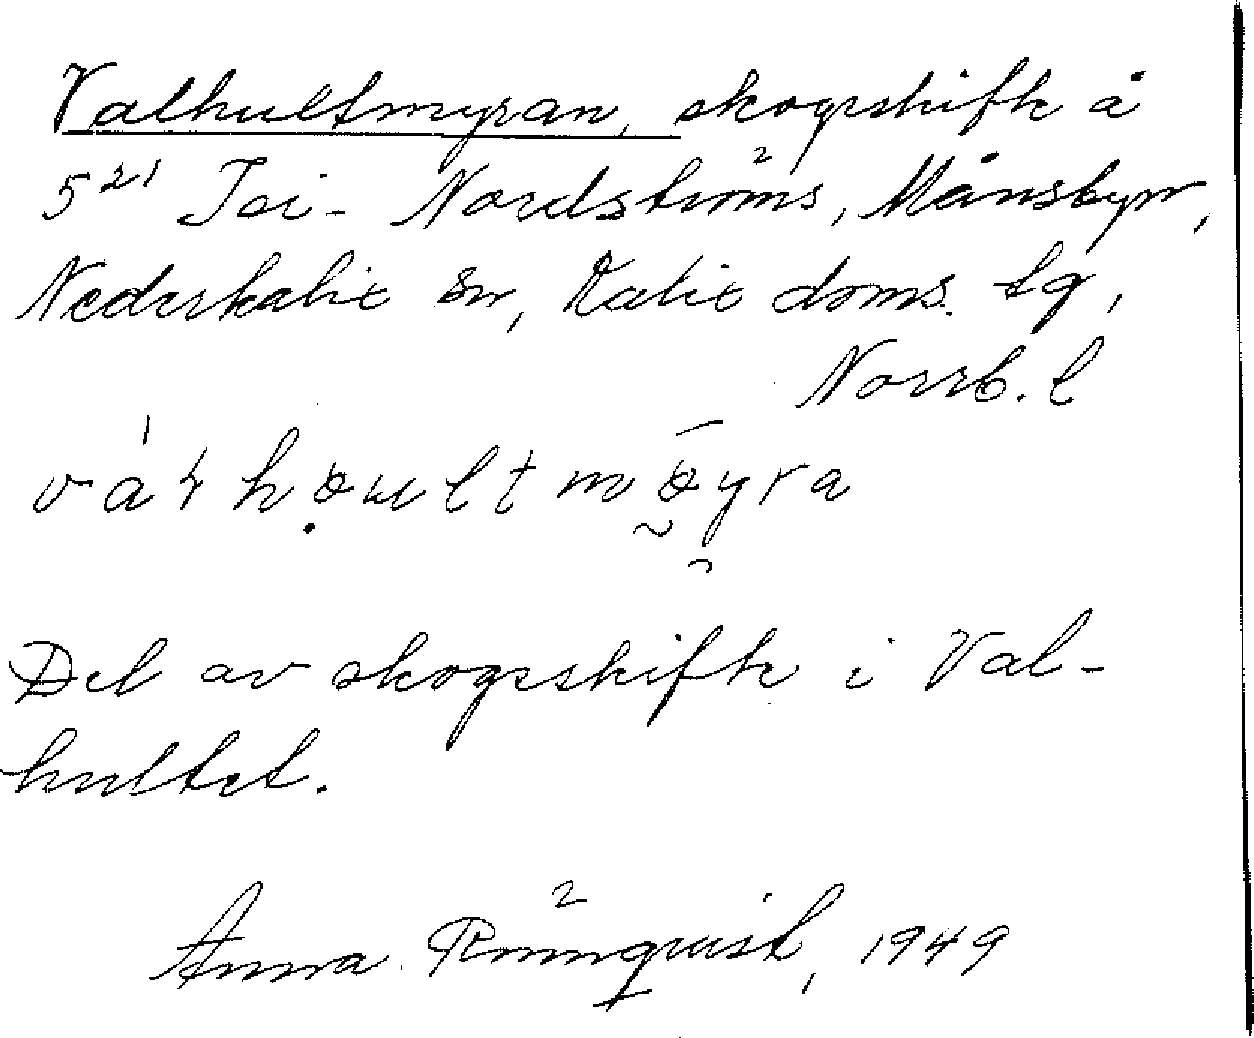 Valhultmyran, skogsskifte å
5²¹ Joi- Nordströms, Månsbyn,
Nederkalix sn, Kalix doms. tg,
Norrb. l
Del av skogsskifte i Val-
hultet.
Anna Rönnqvist, 1949